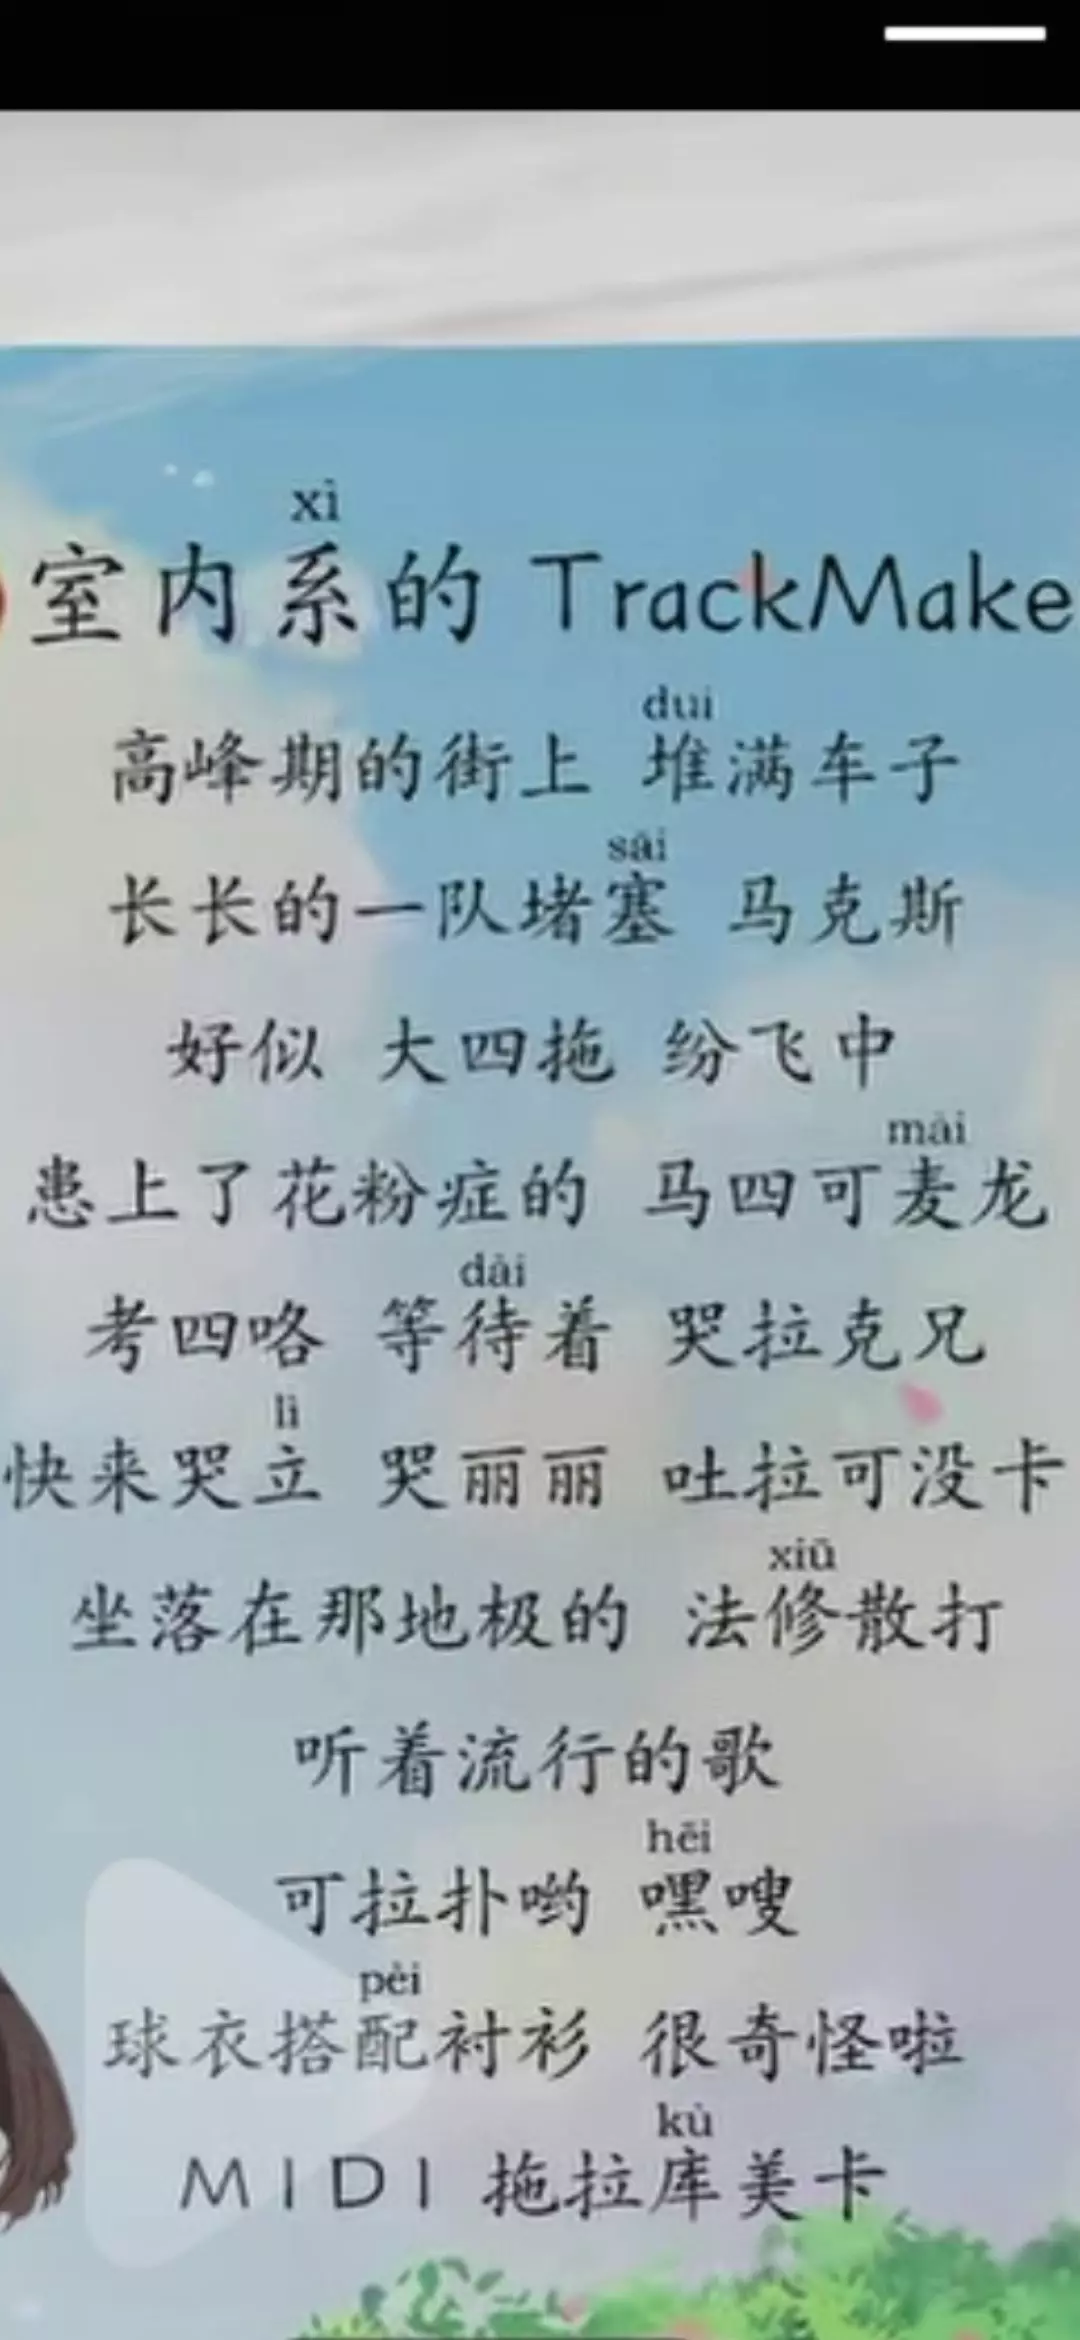 xì
室内系的 TrackMake
duī
高峰期的街上 堆满车子
sāi
长长的一队堵塞 马克斯
好似 大四拖 纷飞中
mài
患上了花粉症的 马四可麦龙
dài
考四咯 等待着 哭拉克兄
lì
快来哭立 哭丽丽 吐拉可没卡
xiū
坐落在那地极的 法修散打
听着流行的歌
hēi
可拉扑哟 嘿嗖
pèi
球衣搭配衬衫 很奇怪啦
kù
MIDI 拖拉库美卡